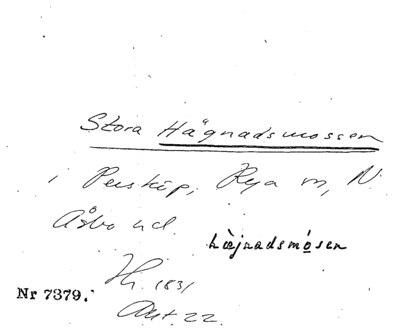 Stora Hägnadsmossen
i Perstorp, Rya sn, N.
Åsbo hd.
hæjnadsmósen
Nr 7379.
Hi. 1831
Akt 22